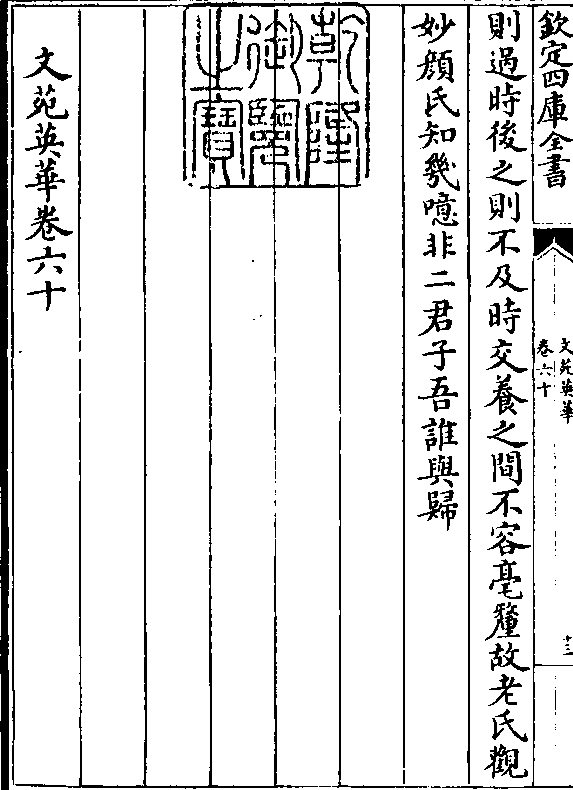 欽定四庫全書
文苑英華
卷六十
十三
則過時後之則不及時交養之間不容毫釐故老氏觀
妙顔氏知幾噫非二君子吾誰與歸
乾隆
御覽
之寶
文苑英華卷六十